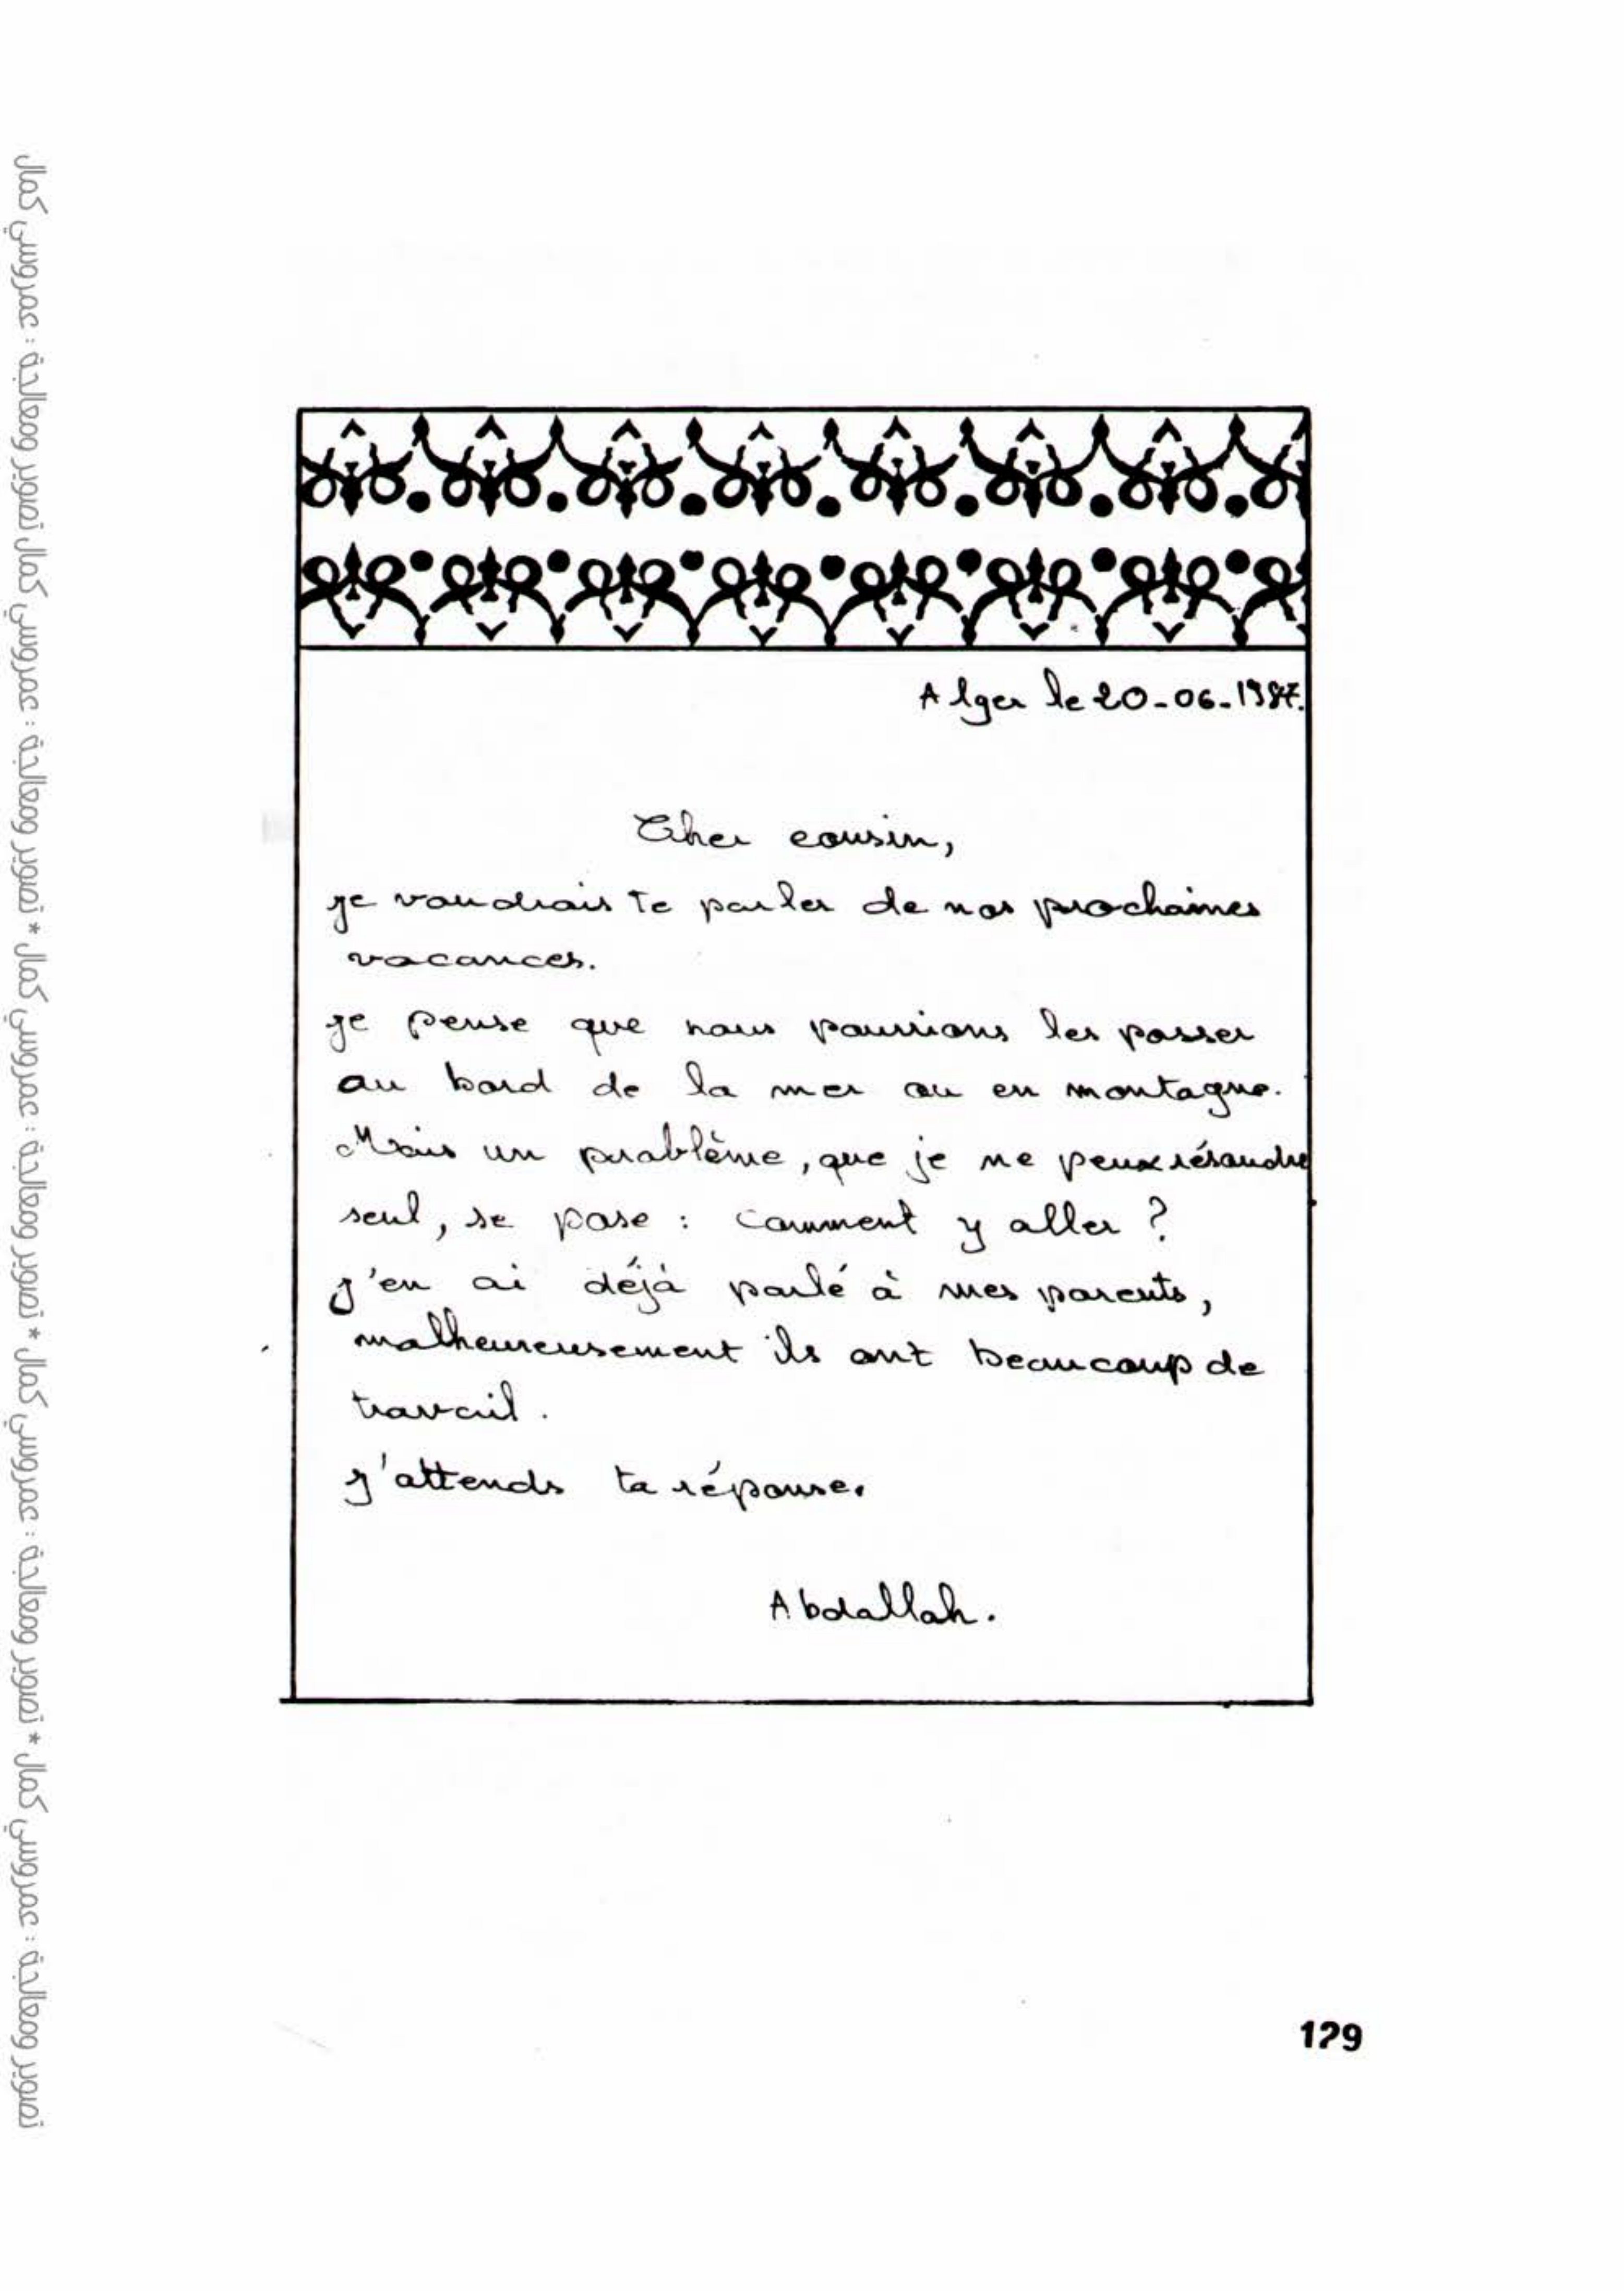 Alger le 20-06-1987.
Cher cousin,
je voudrais te parler de nos prochaines
vacances.
je pense que nous pourrions les passer
au bord de la mer ou en montagne.
Mais un problème, que je ne peux résoudre
seul, se pose : comment y aller ?
J'en ai déjà parlé à mes parents,
malheureusement ils ont beaucoup de
travail.
J'attends ta réponse.
Abdallah.
129
تصوير ومعالجة : عمروسي كمال * تصوير ومعالجة : عمروسي كمال * تصوير ومعالجة : عمروسي كمال * تصوير ومعالجة : عمروسي كمال تصوير ومعالجة : عمروسي كمال